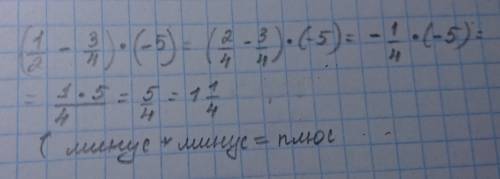 (1/2 - 3/4) · (-5) = (2/4 - 3/4) · (-5) = - 1/4 · (-5) =
= 1 · 5/4 = 5/4 = 1 1/4
( минус + минус = плюс